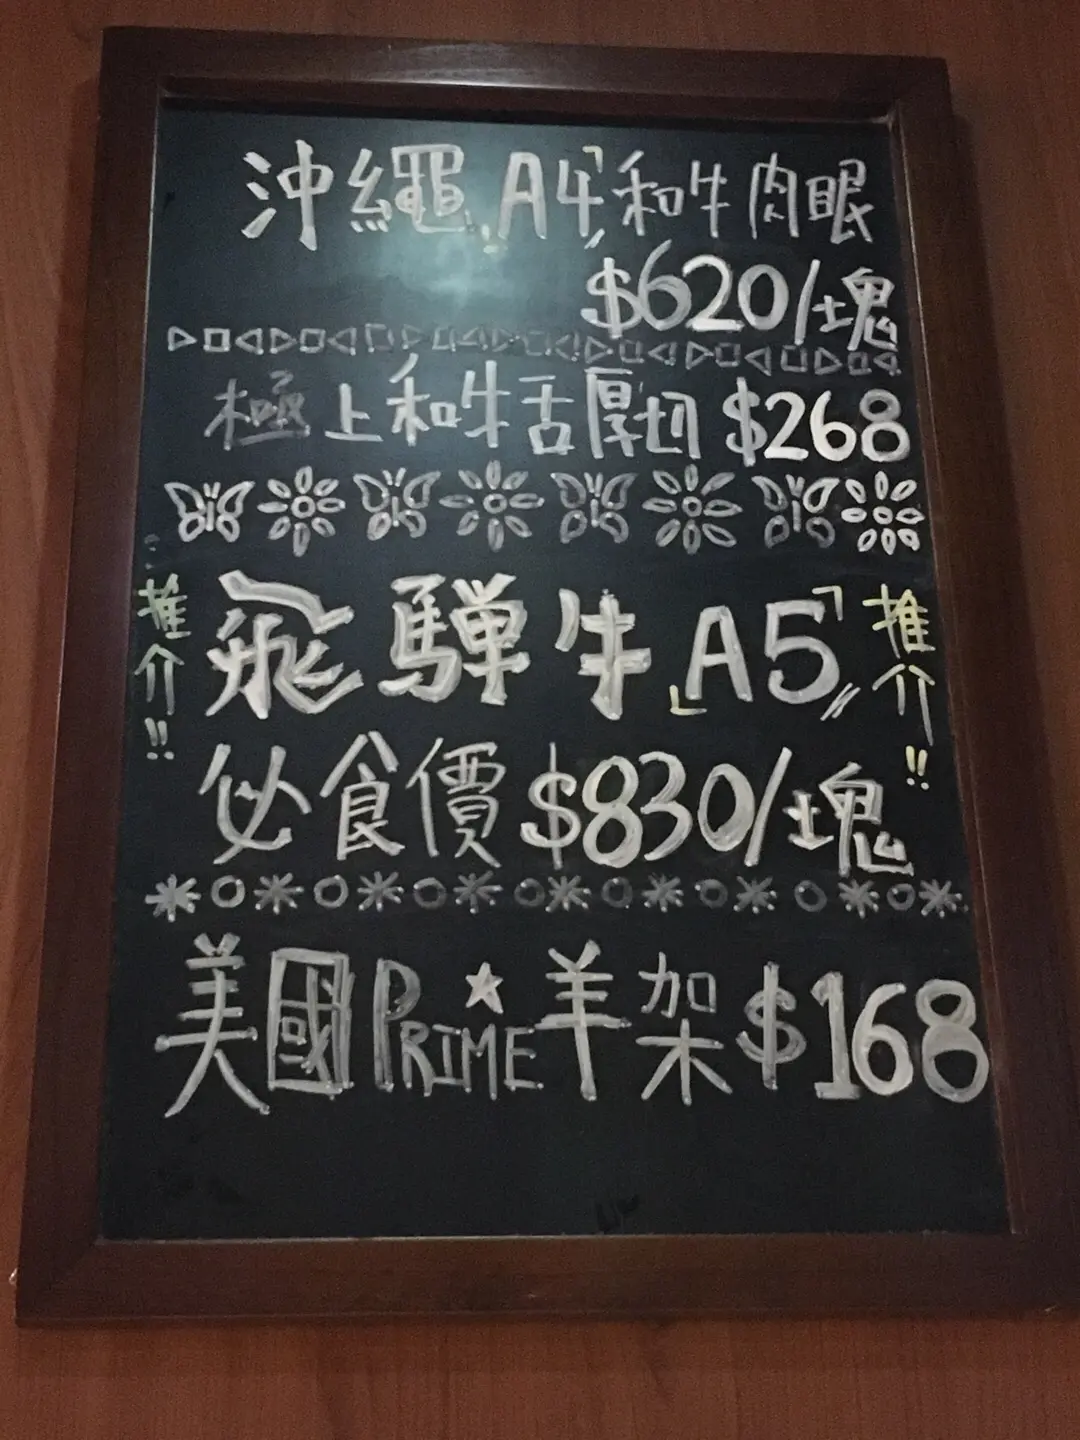 沖繩「A4」和牛肉眼
$620/塊
極上和牛舌厚切 $268
推介!!
飛驒牛「A5」
推介!!
必食價 $830/塊
美國PRIME羊架 $168